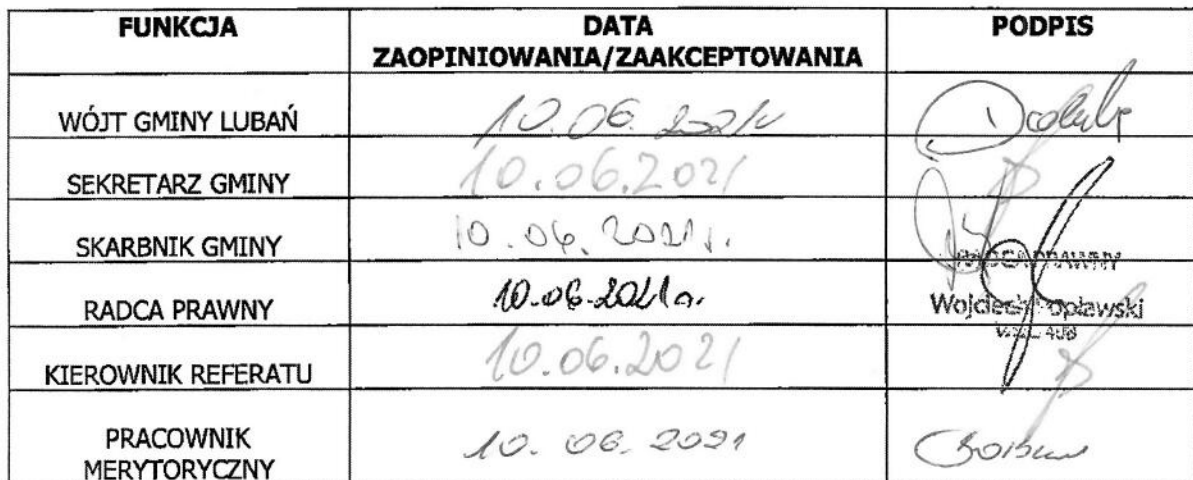 FUNKCJA
DATA
ZAOPINIOWANIA/ZAAKCEPTOWANIA
PODPIS
WÓJT GMINY LUBAŃ
10.06.2021r
SEKRETARZ GMINY
10.06.2021
SKARBNIK GMINY
10.06.2021r.
RADCA PRAWNY
10.06.2021r.
RADCA PRAWNY
Wojciech Popławski
KIEROWNIK REFERATU
10.06.2021
PRACOWNIK
MERYTORYCZNY
10.06.2021